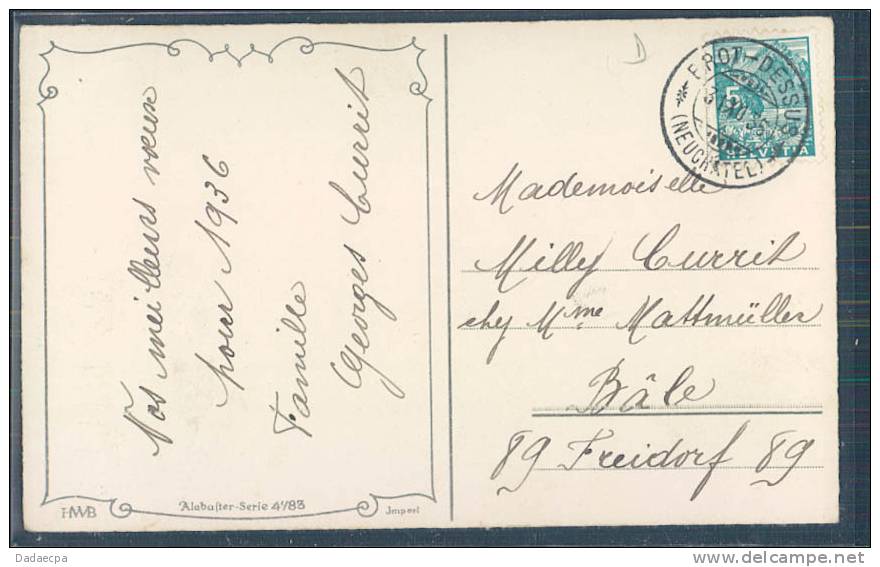 Nos meilleurs vœux
pour 1936
Famille
Georges Currit
HWB
Alabaster-Serie 4183
Import
D
BROT-DESSUS
(NEUCHATEL)
5
HELVETIA
Mademoiselle
Milly Currit
chez Mme Mattmüller
Bâle
89 Freidorf 89
Dadaecpa
www.delcampe.net